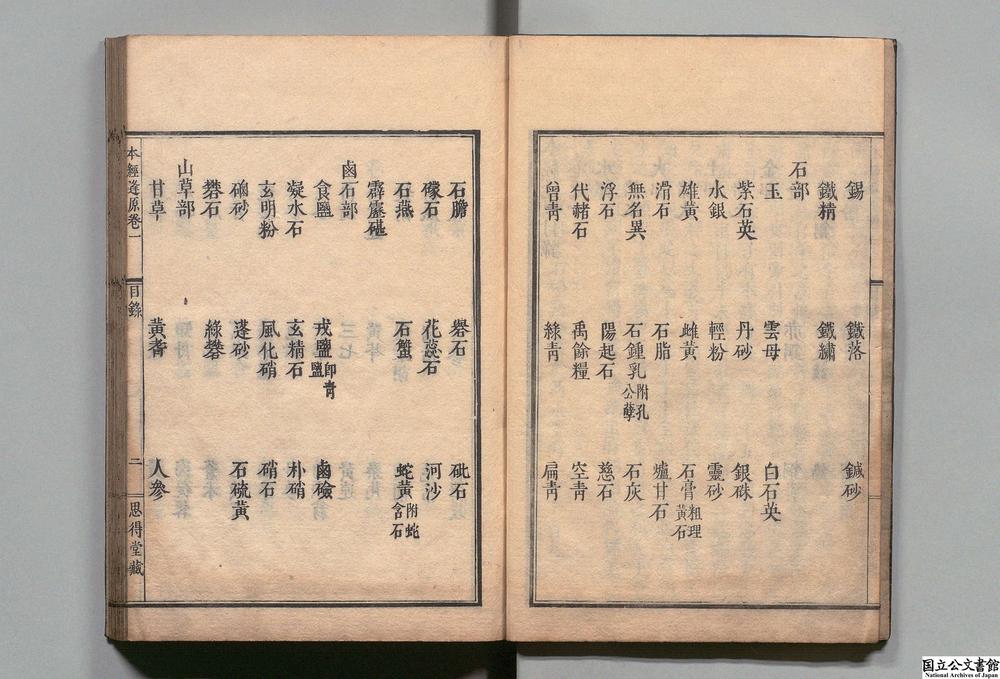 錫 鐵落 鍼砂
鐵精 鐵繡
石部
玉 雲母 白石英
紫石英 丹砂 銀硃
水銀 輕粉 靈砂
雄黃 雌黃 石膏粗理黃石
滑石 石脂 爐甘石
無名異 石鍾乳附孔公孽 石灰
浮石 陽起石 慈石
代赭石 禹餘糧 空青
曾青 綠青 扁青
石膽 礜石 砒石
礞石 花蕊石 河沙
石燕 石蟹 蛇黃附蛇含石
霹靂碪
鹵石部
食鹽 戎鹽卽青鹽 鹵鹼
凝水石 玄精石 朴硝
玄明粉 風化硝 硝石
硇砂 蓬砂 石硫黃
礬石 綠礬
山草部
甘草 黃耆 人參
本經逢原卷一 目錄 二 思得堂藏
国立公文書館
National Archives of Japan